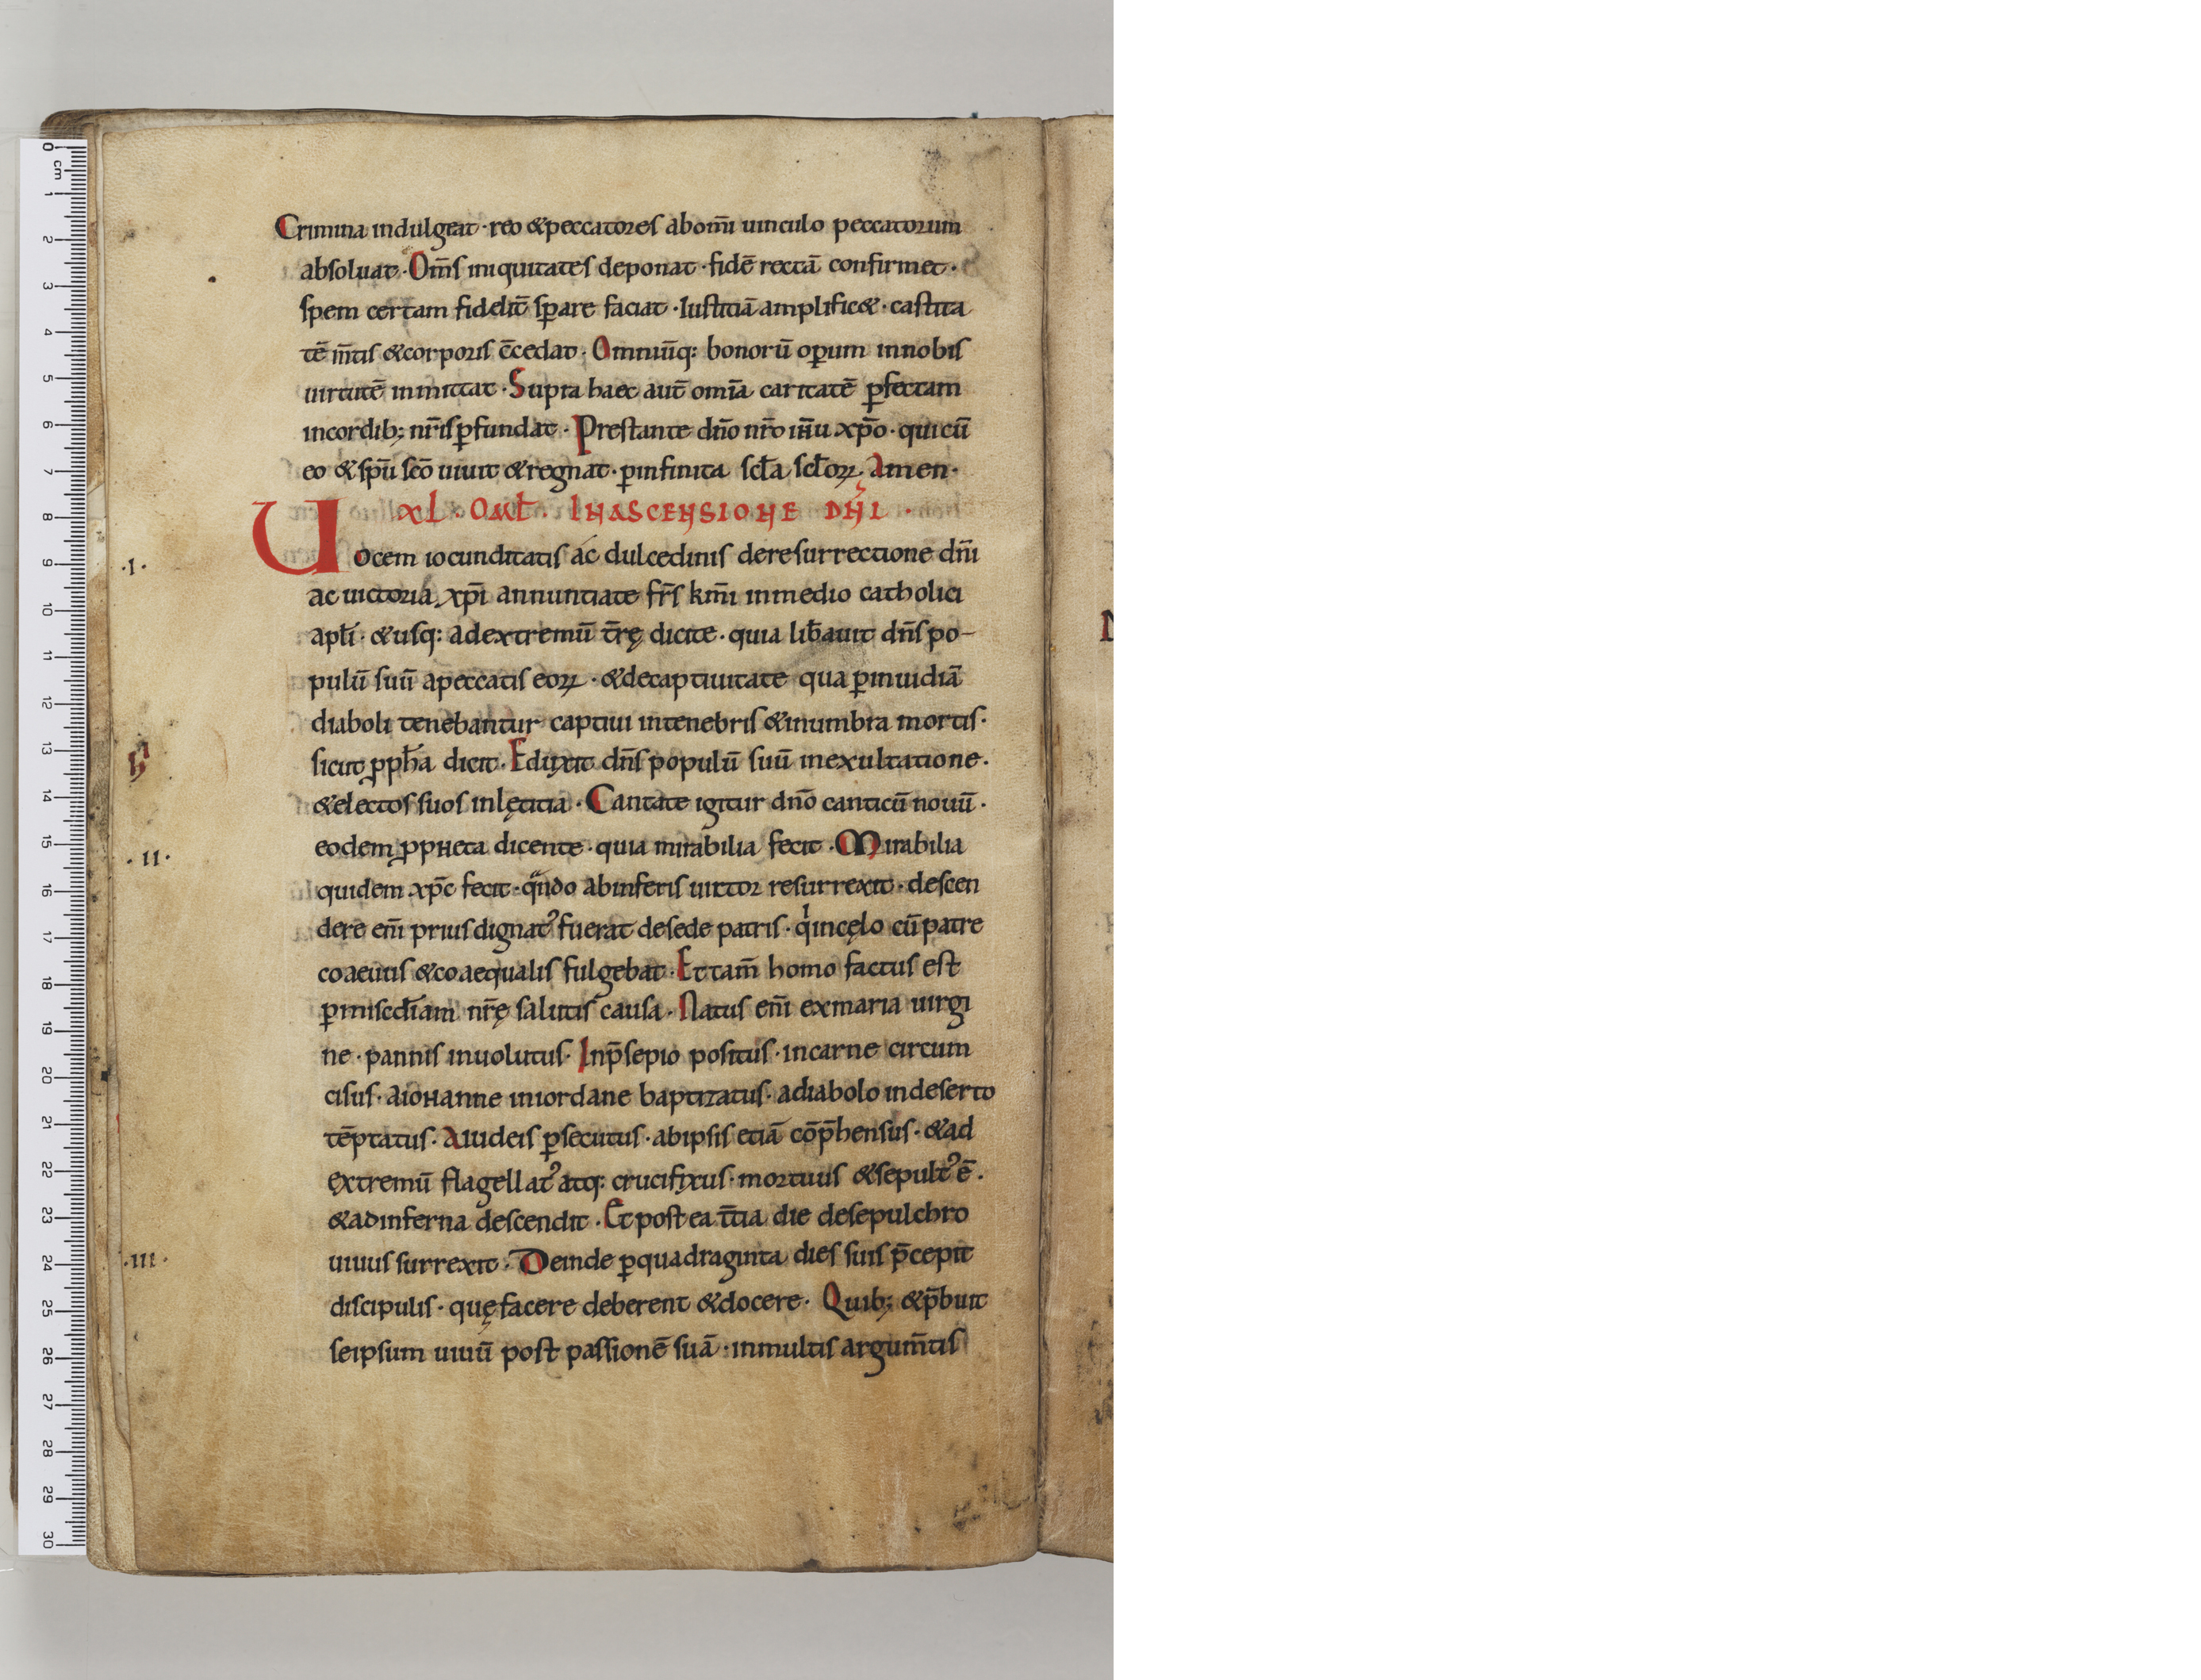 Crimina indulgeat · reo &peccatores abom̄i uinculo peccatorum
absoluat · Om̄s iniquitates deponat · fidē rectā confirmet ·
spem certam fidelit̄ sꝑare faciat · Iustitiā amplific& · castita
tē m̄tis &corporis c̄cedat · Omniūq: bonorū oꝑum innobis
uirtutē inmittat · Supra haec aut̄ omīa caritatē ꝑfectam
incordib; nr̄is ꝑfundat · Prestante dn̄o nr̄o ih̄u xp̄o · quicū
eo &sp̄u sc̄o uiuit &regnat · ꝑinfinita scl̄a scl̄oꝝ · Amen ·
XL · OMl̄ · INASCENSIONE DN̄I ·
Uocem iocunditatis ac dulcedinis deresurrectione dn̄i
ac uictoria xp̄i annuntiate fr̄s km̄i inmedio catholici
apl̄i · &usq: adextremū t̄rę dicite · quia lib̄auit dn̄s po-
·I·
pulū suū apeccatis eoꝝ · &decaptiuitate qua ꝑinuidiā
diaboli tenebantur captiui intenebris &inumbra mortis ·
sicut ꝓph̄a dicit · Eduxit dn̄s populū suū inexultatione ·
&electos suos inlętitia · Cantate igitur dn̄o canticū nouū ·
eodem ꝓpheta dicente · quia mirabilia fecit · Mirabilia
·II·
quidem xp̄c fecit · qͣndo abinferis uictor resurrexit · descen
dere em̄ prius dignatꝰ fuerat desede patris · qͥ incęlo cū patre
coaeuus &coaequalis fulgebat · Et tam̄ homo factus est
ꝑmiscd̄iam nr̄ę salutis causa · Natus em̄ exmaria uirgi
ne · pannis inuolutus · Inp̄sepio positus · incarne circum
cisus · aiohanne iniordane baptizatus · adiabolo indeserto
tēptatus · Aiudeis ꝑsecutus · abipsis etiā cōp̄hensus · &ad
extremū flagellatꝰ atq: crucifixus · mortuus &sepultꝰ ē ·
&adinferna descendit · Et postea t̄tia die desepulchro
uiuus surrexit · Deinde ꝑquadraginta dies suis p̄cepit
·III·
discipulis · quę facere deberent &docere · Quib; &p̄buit
seipsum uiuū post passionē suā · inmultis argum̄tis